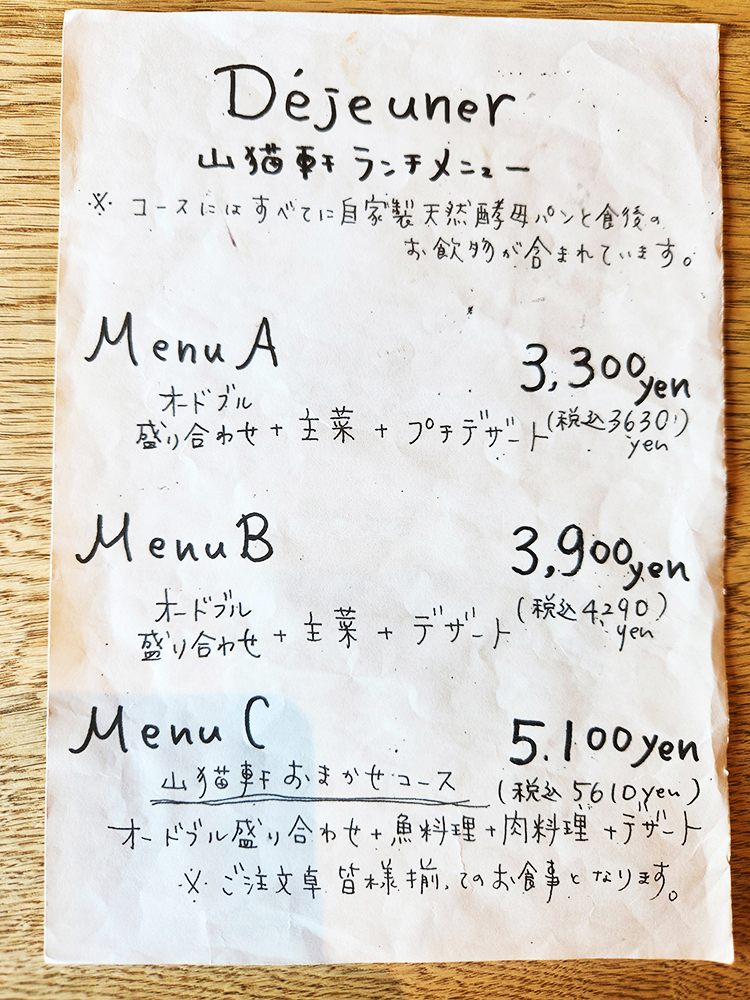 Déjeuner
山猫軒 ランチメニュー
※ コースにはすべてに自家製天然酵母パンと食後の
お飲物が含まれています。
Menu A 3,300yen
オードブル
盛り合わせ + 主菜 + プチデザート (税込3630)
yen
Menu B 3,900yen
オードブル
盛り合わせ + 主菜 + デザート (税込4,290)
yen
Menu C 5.100yen
山猫軒おまかせコース (税込5610yen)
オードブル盛り合わせ+魚料理+肉料理+デザート
※ ご注文卓 皆様揃ってのお食事となります。